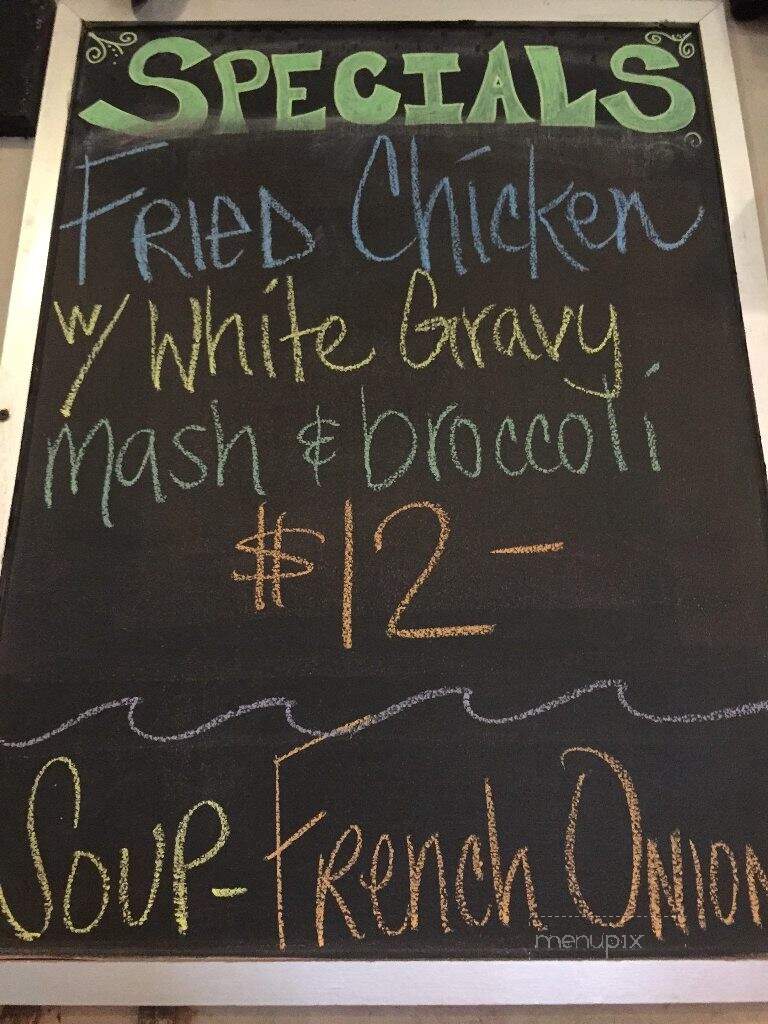 SPECIALS
FRIED Chicken
w/ White Gravy
mash & broccoli
$12-
Soup- French Onion
menupix